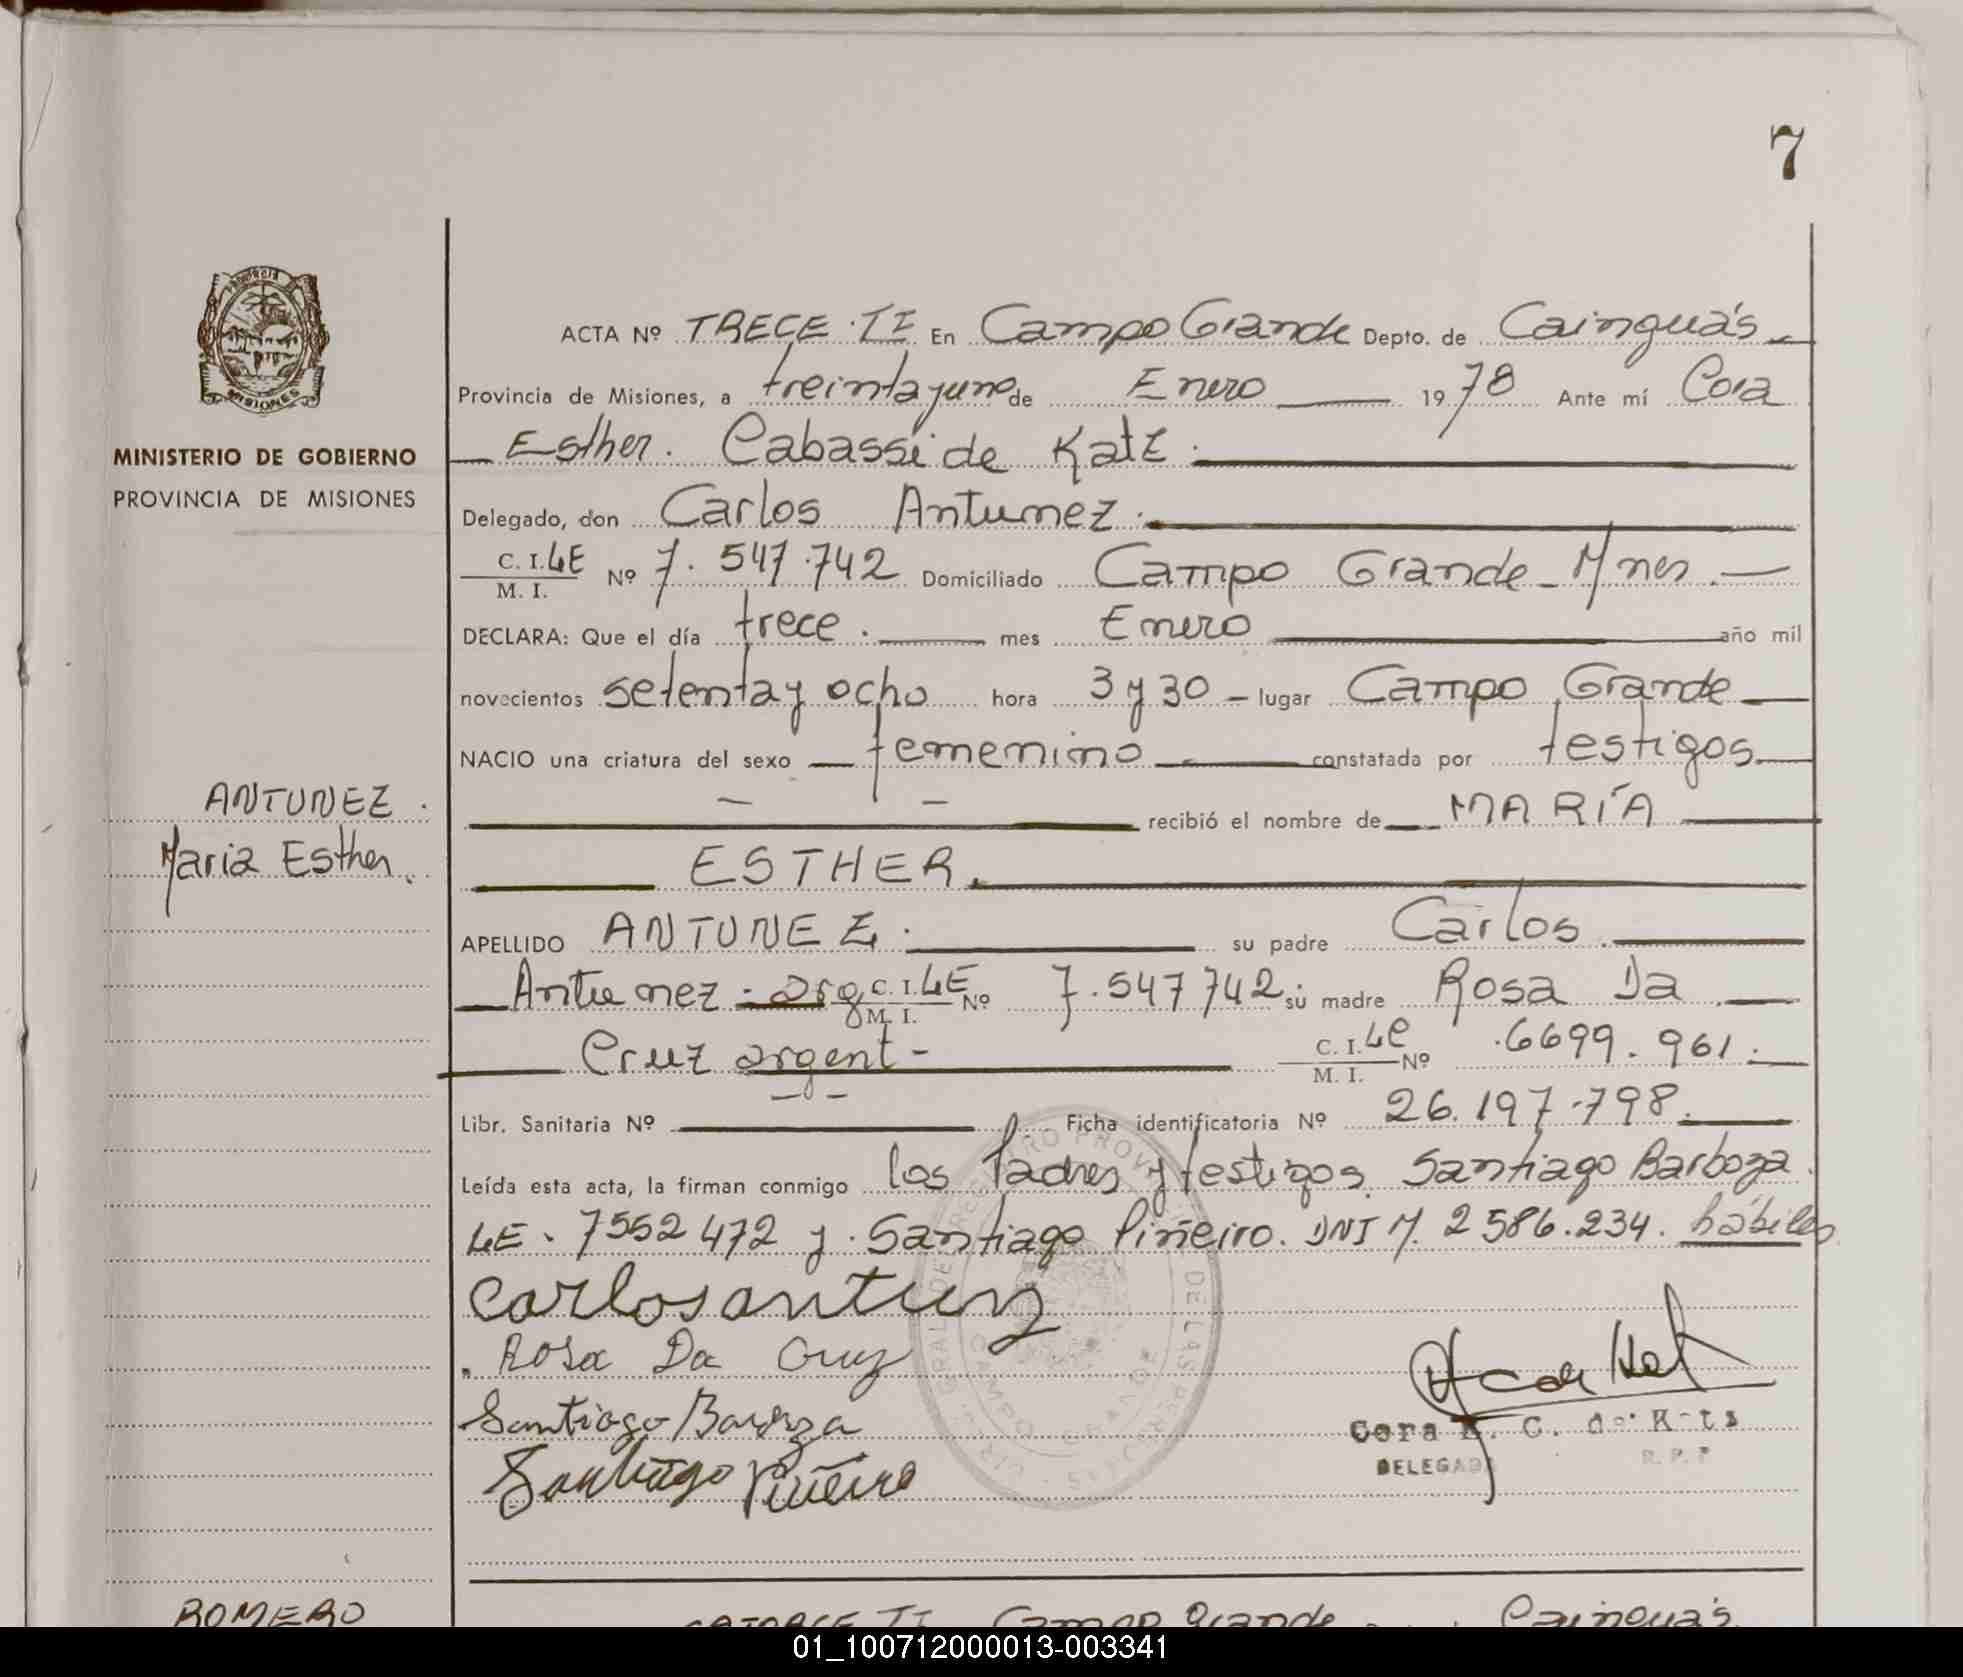 7
PROVINCIA
MISIONES
MINISTERIO DE GOBIERNO
PROVINCIA DE MISIONES
ACTA Nº TRECE. II En Campo Grande Depto. de Cainguás
Provincia de Misiones, a treinta y uno de Enero 1978 Ante mí Cora
Esther. Cabassi de Katz.
Delegado, don Carlos Antunez.
C. I. LE
M. I.
Nº 7.547.742 Domiciliado Campo Grande - Mnes.
DECLARA: Que el día trece. mes Enero año mil
novecientos setenta y ocho hora 3 y 30 - lugar Campo Grande
NACIO una criatura del sexo femenino constatada por testigos.
ANTUNEZ.
recibió el nombre de MARÍA
Maria Esther.
ESTHER.
APELLIDO ANTUNEZ. su padre Carlos
Antunez - arg C. I. LE Nº 7.547742 su madre Rosa Da
M. I.
Cruz argent - C. I. LE Nº 6699.961.
M. I.
Libr. Sanitaria Nº Ficha identificatoria Nº 26.197.798.
Leída esta acta, la firman conmigo los Padres y testigos. Santiago Barboza.
LE. 7552472 y. Santiago Piñeiro. DNI M. 2586.234. hábiles
Carlos antunz
Rosa Da Cruz
Santiago Barboza
Santiago Piñeiro
Cora E. C. de Katz
DELEGADA
R. P. P
ROMERO
CATORCE II Campo Grande Cainguás
01_100712000013-003341